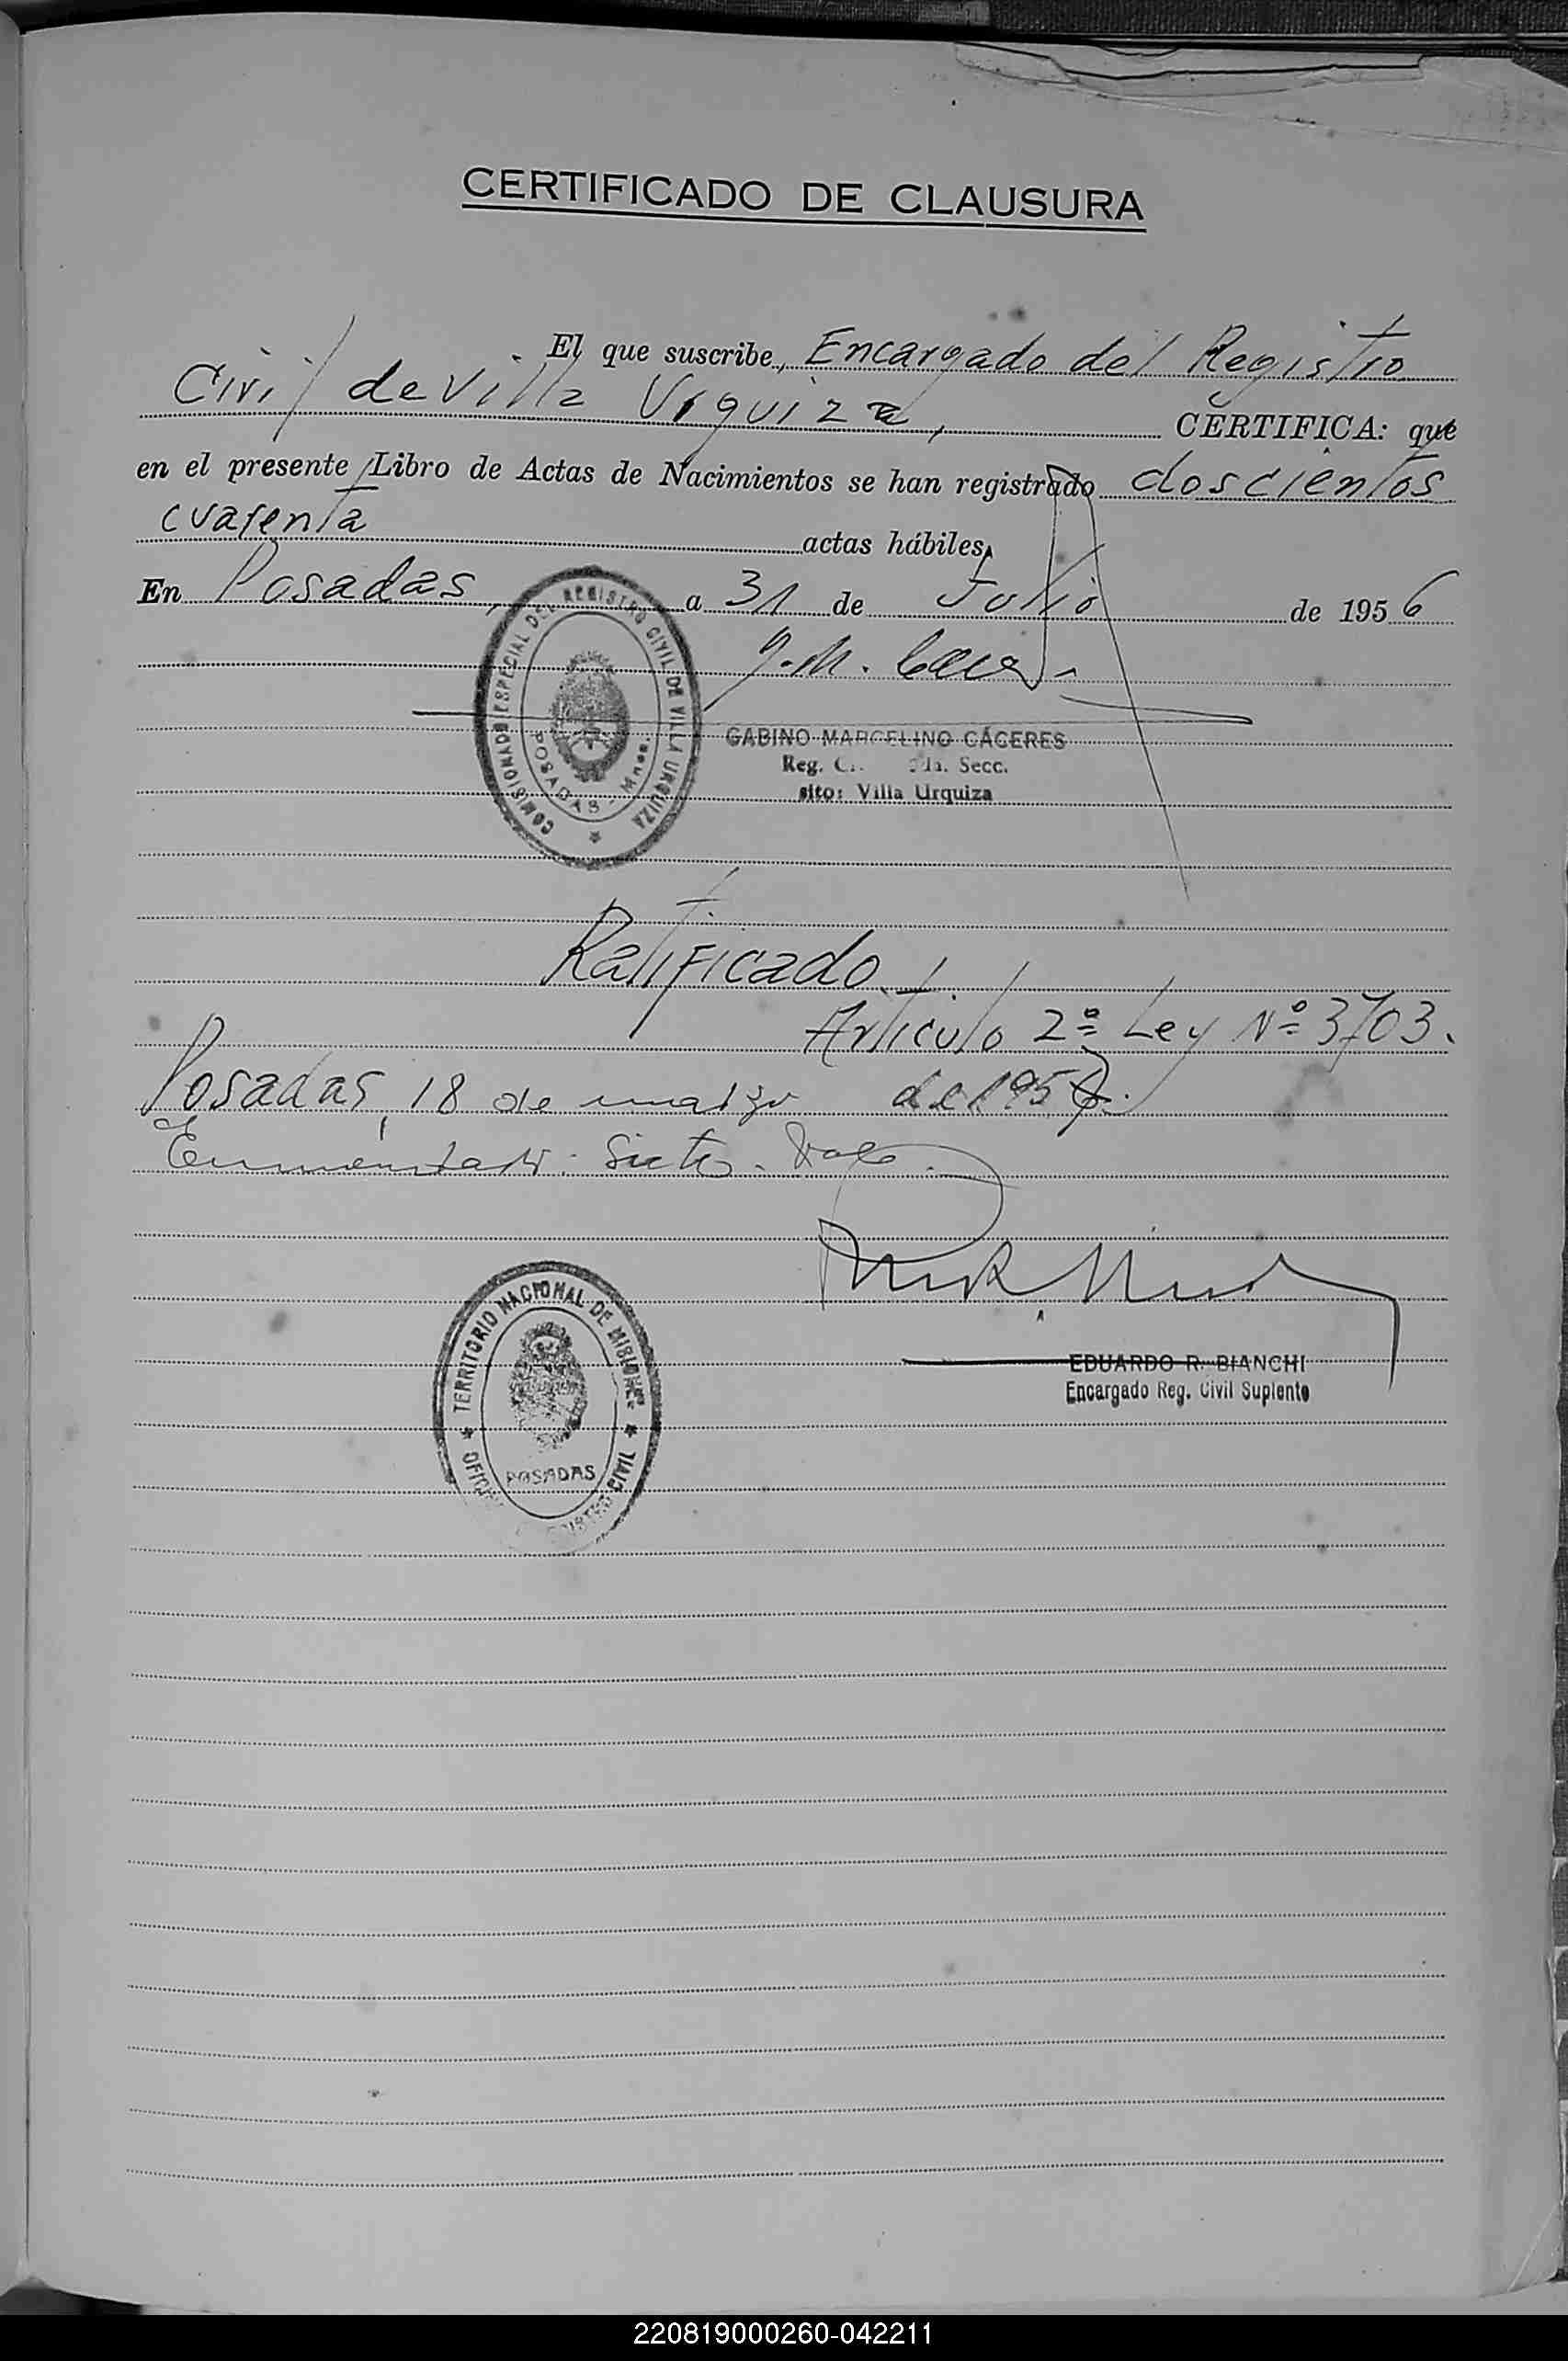 CERTIFICADO DE CLAUSURA
El que suscribe, Encargado del Registro
Civil de Villa Urquiza, CERTIFICA: que
en el presente Libro de Actas de Nacimientos se han registrado doscientos
cuarenta actas hábiles
En Posadas, a 31 de Julio de 1956
G. M. Caceres
COMISIONADO ESPECIAL DEL REGISTRO CIVIL DE VILLA URQUIZA
POSADAS - Mnes.
GABINO MARCELINO CÁCERES
Reg. Secc.
sito: Villa Urquiza
Ratificado
Artículo 2º Ley Nº 3703.
Posadas, 18 de marzo de 1957.
Enmendado: Siete. Vale.
TERRITORIO NACIONAL DE MISIONES
POSADAS
CIVIL
EDUARDO R. BIANCHI
Encargado Reg. Civil Suplente
220819000260-042211